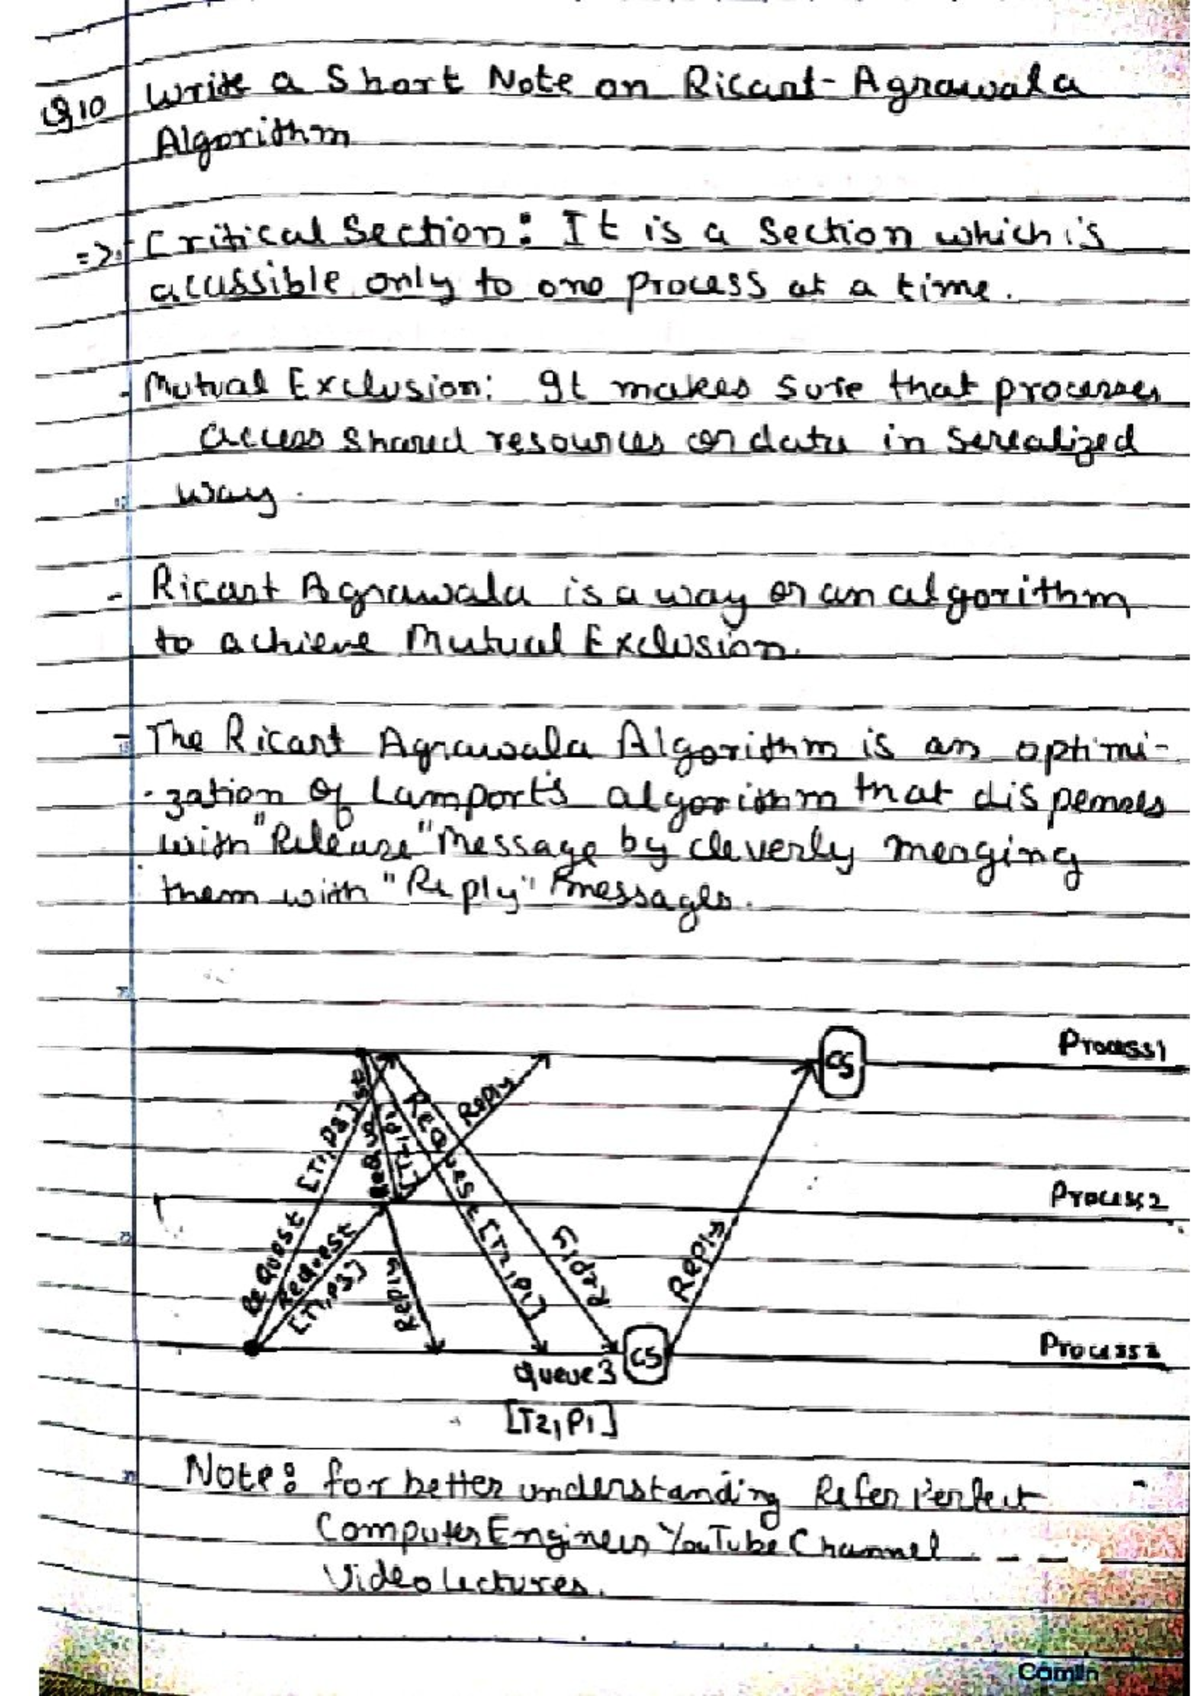 Q10 Write a Short Note on Ricart-Agrawala
Algorithm
=> Critical Section: It is a Section which is
acussible only to one process at a time.
- Mutual Exclusion: It makes sure that processes
access shared resources or data in Serealized
way.
- Ricart Agrawala is a way or an algorithm
to achieve Mutual Exclusion.
- The Ricart Agrawala Algorithm is an optimi-
-zation of Lamport's algorithm that dispenses
with "Release" Message by cleverly merging
them with "Reply" messages.
CS
Process1
Request [T1,P3]
Request [T2,P1]
Request [T2,P1]
Reply
Process2
Request
[T1,P3]
Reply
Reply
Reply
CS
Queue3
[T2,P1]
Note: for better understanding Refer Perfect
Computer Engineers YouTube Channel
Video lectures.
Camlin